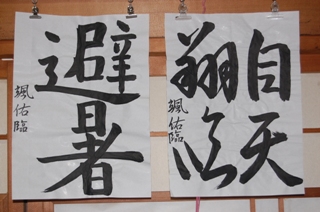 自天
翔
颯佑臨
避暑
颯佑臨